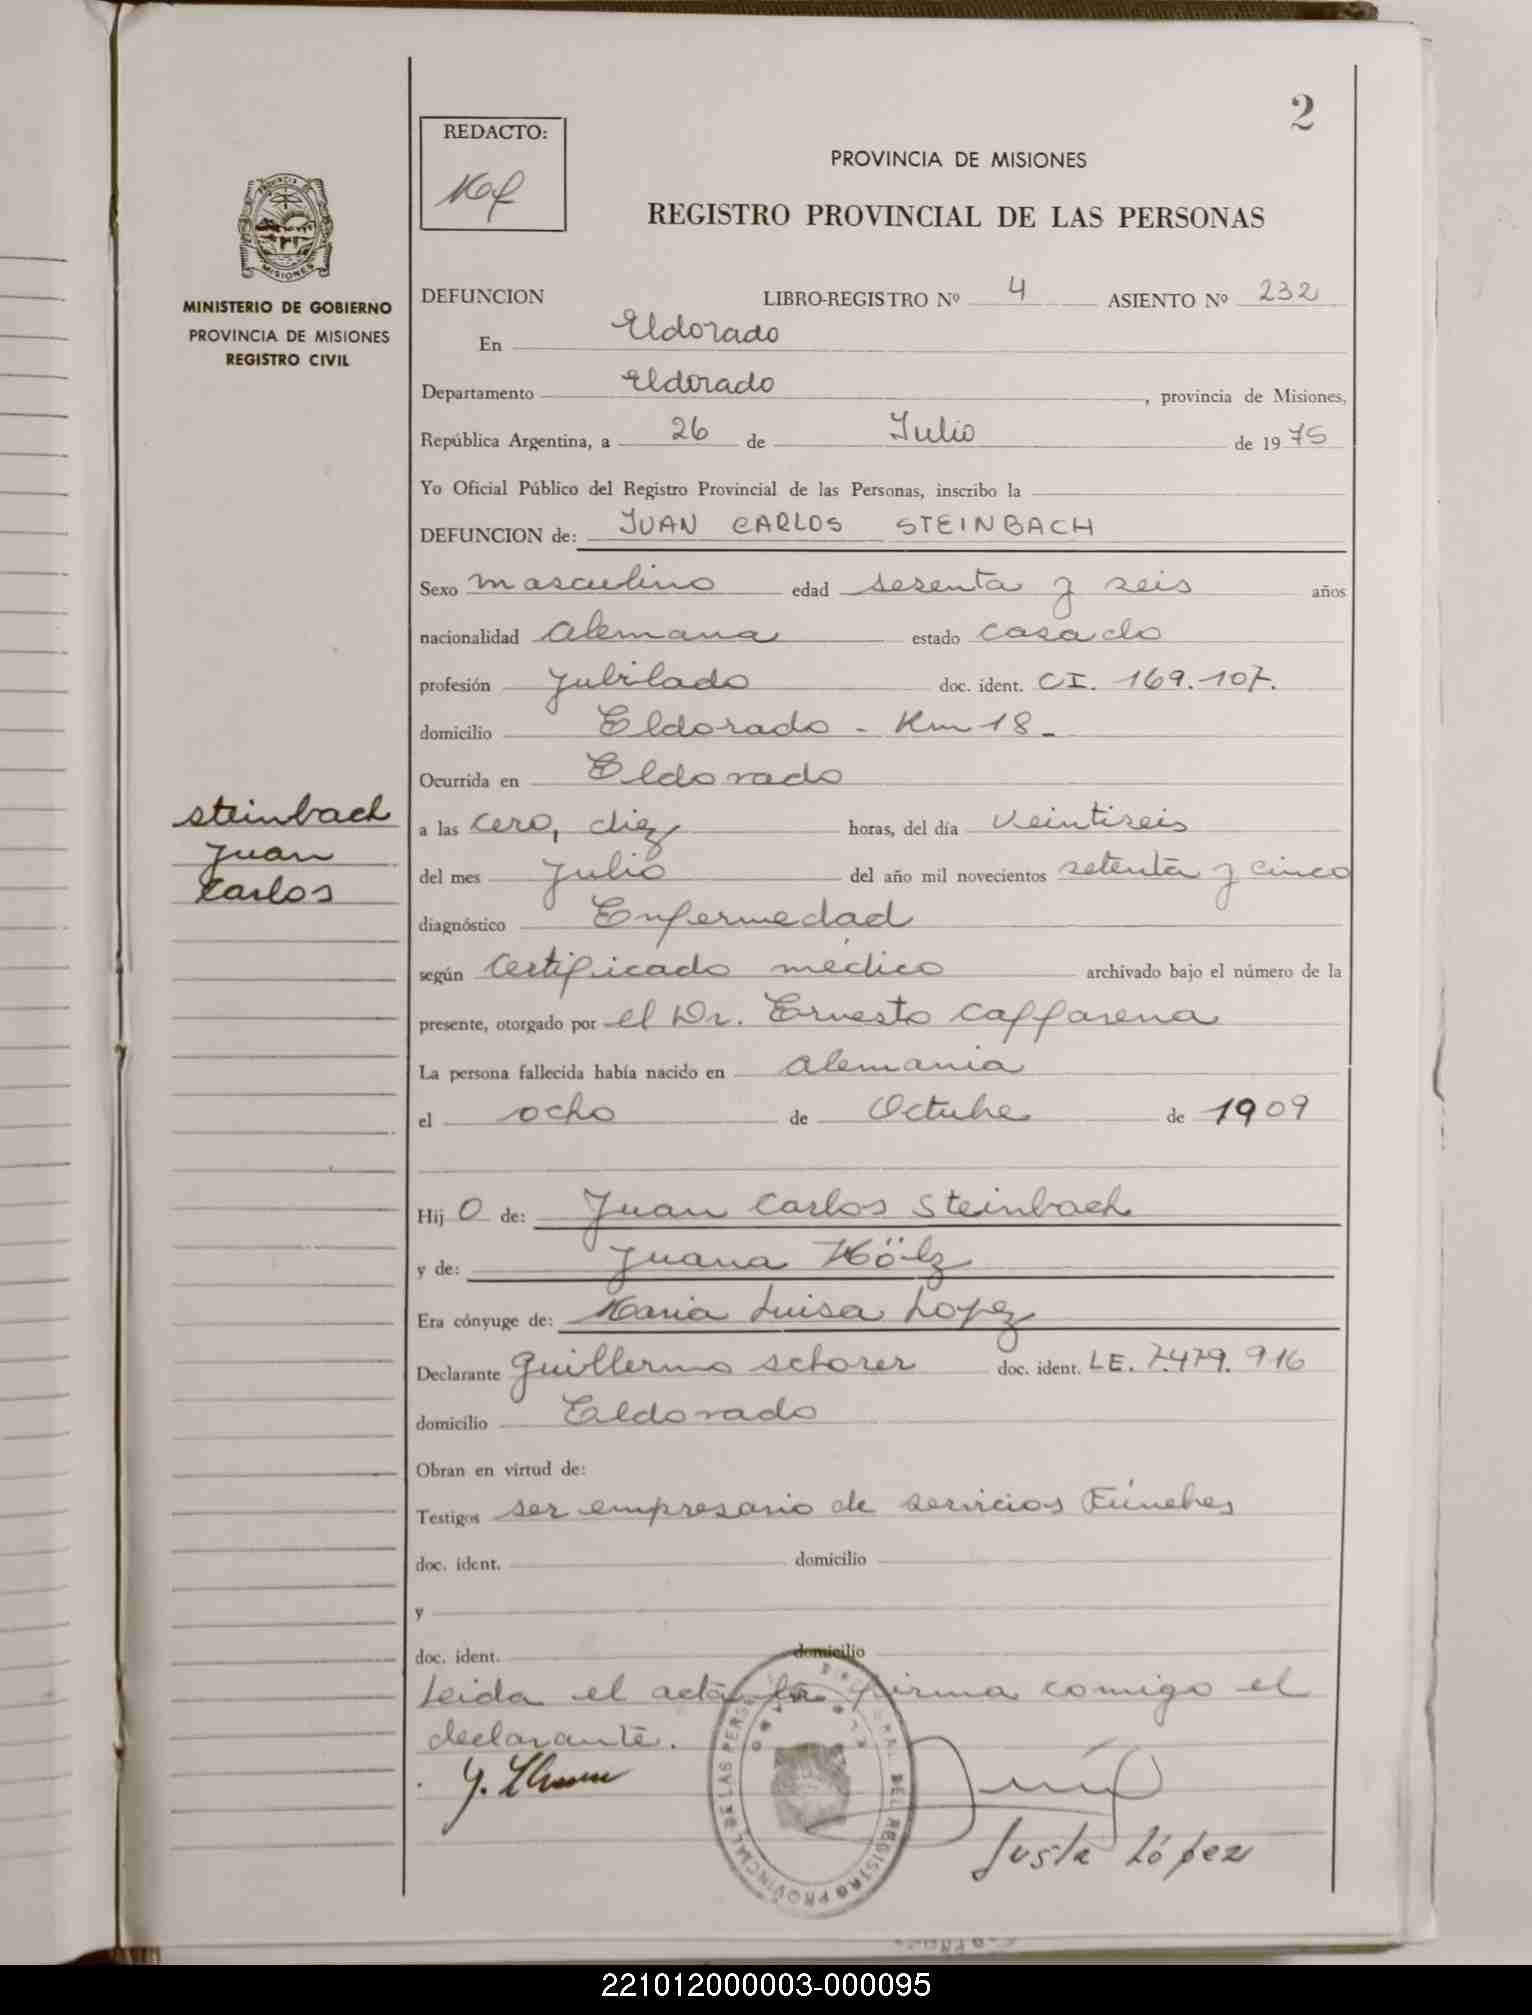 2
REDACTO:
PROVINCIA DE MISIONES
REGISTRO PROVINCIAL DE LAS PERSONAS
PROVINCIA DE
MISIONES
MINISTERIO DE GOBIERNO
PROVINCIA DE MISIONES
REGISTRO CIVIL
DEFUNCION LIBRO-REGISTRO Nº 4 ASIENTO Nº 232
En Eldorado
Departamento Eldorado, provincia de Misiones,
República Argentina, a 26 de Julio de 1975
Yo Oficial Público del Registro Provincial de las Personas, inscribo la
DEFUNCION de: JUAN CARLOS STEINBACH
Sexo masculino edad sesenta y seis años
nacionalidad alemana estado casado
profesión jubilado doc. ident. CI. 169.107.
domicilio Eldorado - Km 18-
Ocurrida en Eldorado
steinbach
Juan
Carlos
a las cero, diez horas, del día veintiseis
del mes Julio del año mil novecientos setenta y cinco
diagnóstico Enfermedad
según certificado médico archivado bajo el número de la
presente, otorgado por el Dr. Ernesto Caffarena
La persona fallecida había nacido en alemania
el ocho de Octubre de 1909
Hij o de: Juan Carlos Steinbach
y de: Juana Hölz
Era cónyuge de: Maria Luisa Lopez
Declarante Guillermo Schorer doc. ident. LE. 7.479.916
domicilio Eldorado
Obran en virtud de:
Testigos ser empresario de servicios Fúnebres
doc. ident. domicilio
y
doc. ident. domicilio
Leida el acta la firma comigo el
declarante.
Justa López
221012000003-000095